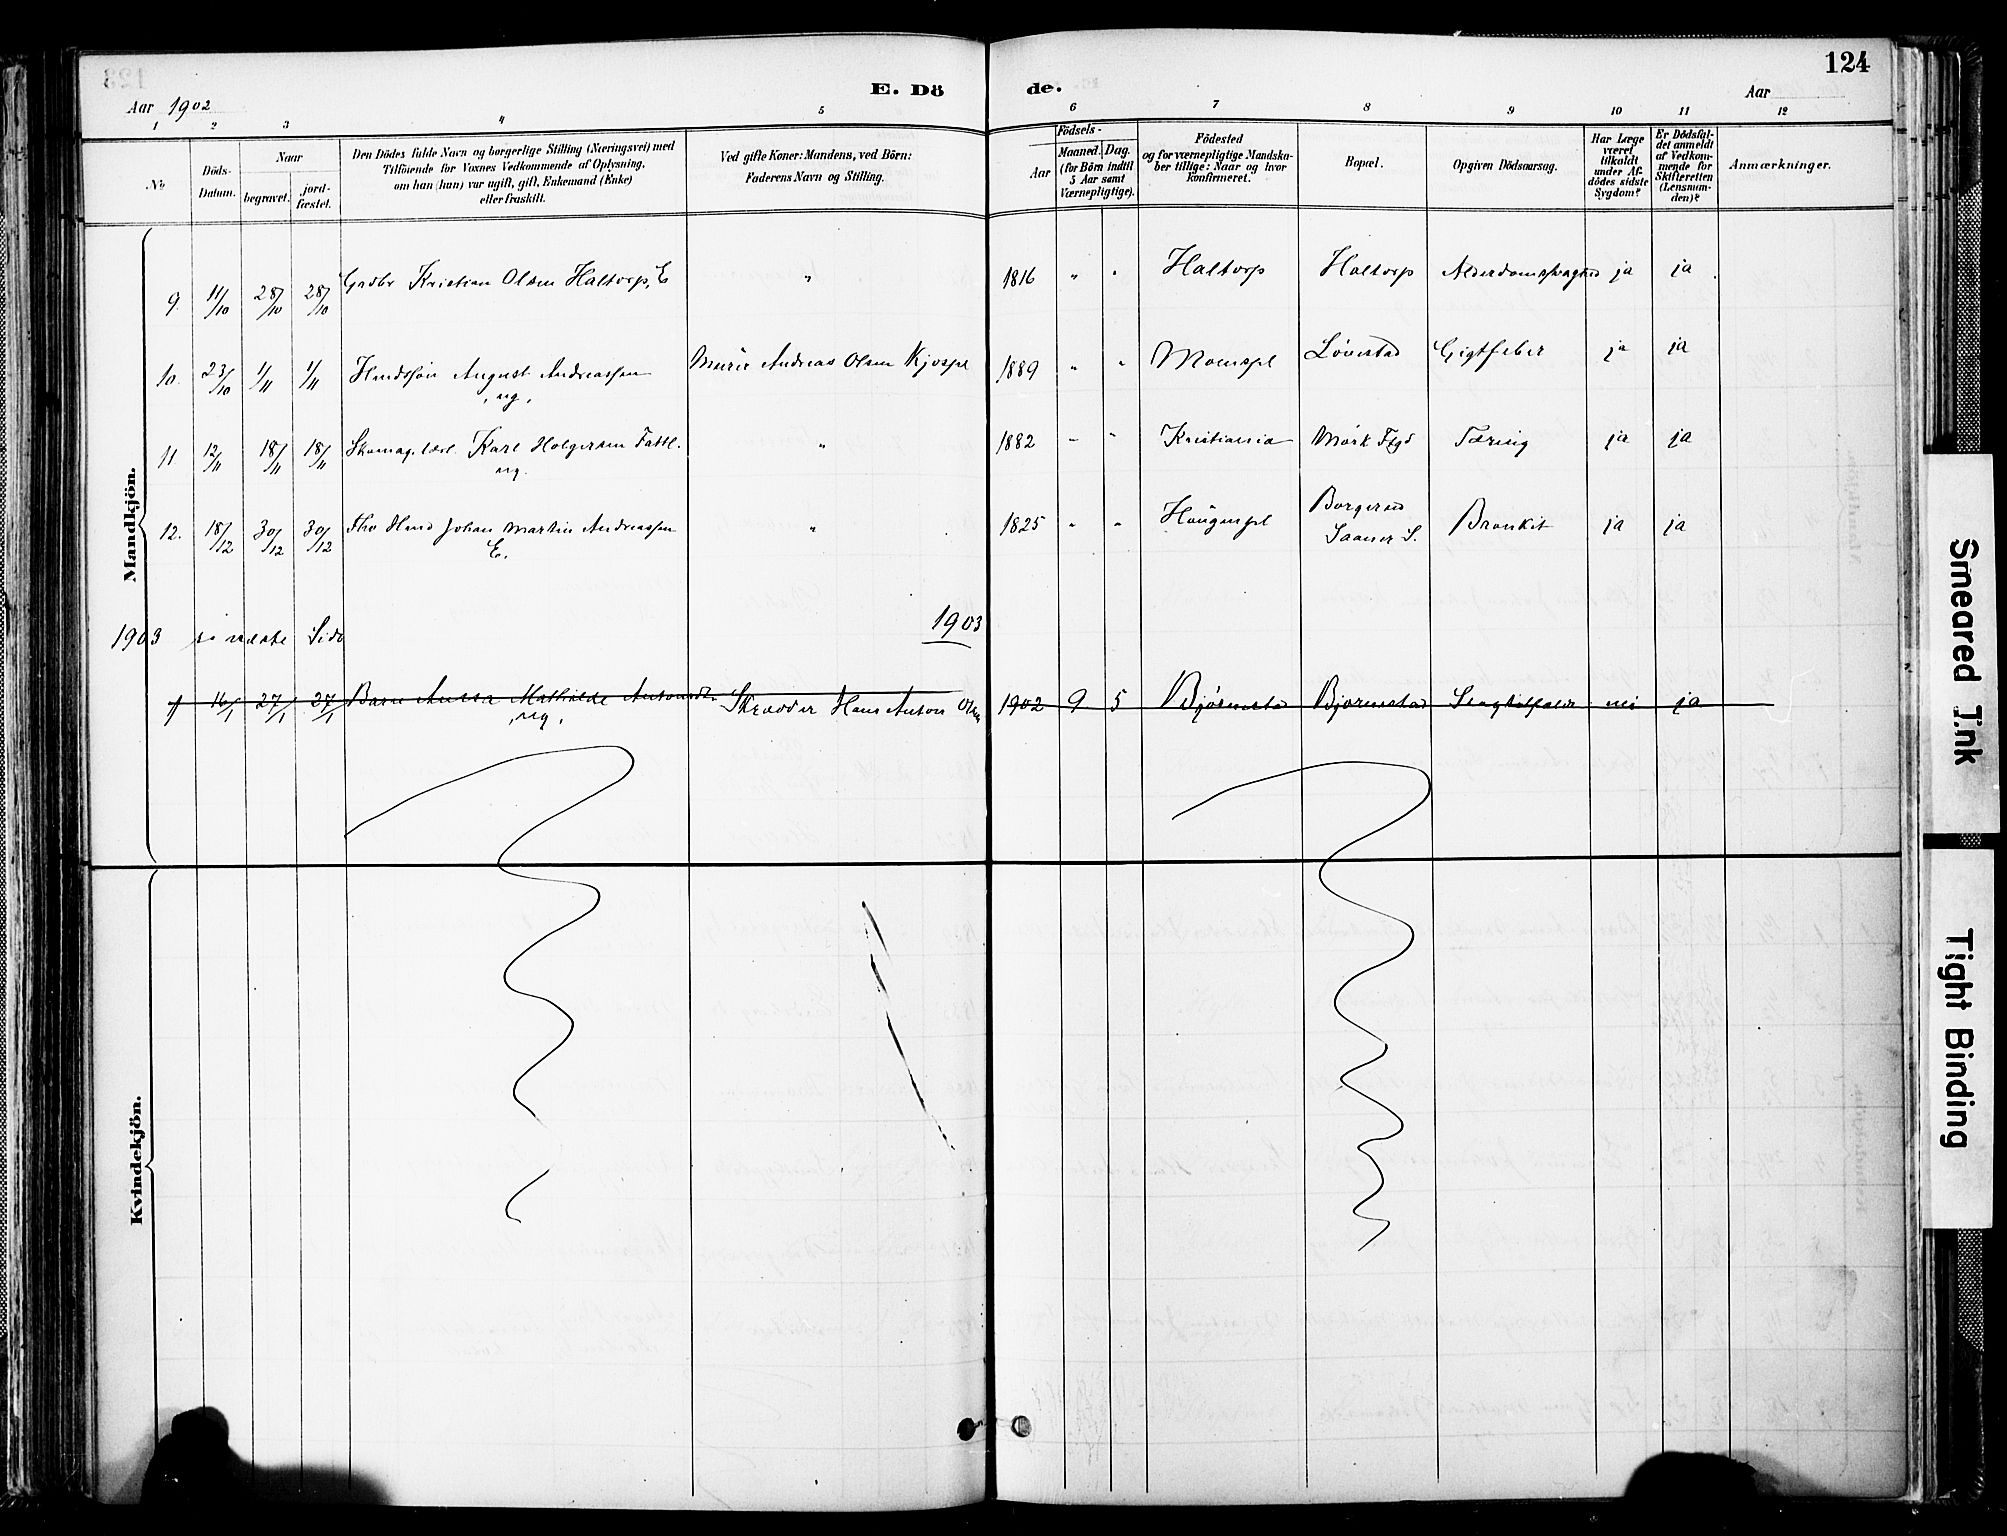 124
E. Dö de.
Aar 1902
Aar
1 2 3 4 5 6 7 8 9 10 11 12
No
Döds-Datum.
Naar
begravet.
jord-fæstet.
Den Dödes fulde Navn og borgerlige Stilling (Næringsvei) med
Tilföiende for Voxnes Vedkommende af Oplysning,
om han (hun) var ugift, gift, Enkemand (Enke)
eller fraskilt.
Ved gifte Koner: Mandens, ved Börn:
Faderens Navn og Stilling.
Födsels-
Aar
Maaned. Dag.
(for Börn indtil
5 Aar samt
Værnepligtige).
Födested
og for værnepligtige Mandska-
ber tillige: Naar og hvor
konfirmeret.
Bopæl.
Opgiven Dödsaarsag.
Har Læge
været
tilkaldt
under Af-
dödes sidste
Sygdom?
Er Dödsfal-
det anmeldt
af Vedkom-
mende for
Skifteretten
(Lensman-
den)?
Anmærkninger.
Mandkjön.
9. 11/10 28/10 28/10 Gaardbr Kristian Olsen Haltorp, E " 1816 " " Haltorp Haltorp ja ja
10. 23/10 1/11 1/11 August Andreassen Murer Andreas Olsen 1889 " " Løvestad Gigtfeber ja ja
, ug,
11 12/11 18/11 18/11 Karl Holgersen " 1882 " " Kristiania Mörk Tæring ja ja
ug.
12. 18/12 30/12 30/12 Johan Martin Andreassen " 1825 " " Borgerud Bronkit ja ja
E. Saaner S.
1903 se næste Side 1903
1 16/1 27/1 27/1 Barn Mathilde Skrædder Hans Anton Olsen 1902 9 5 Bjørnstad Bjørnstad nei ja
, ug,
Kvindekjön.
Smeared Ink
Tight Binding